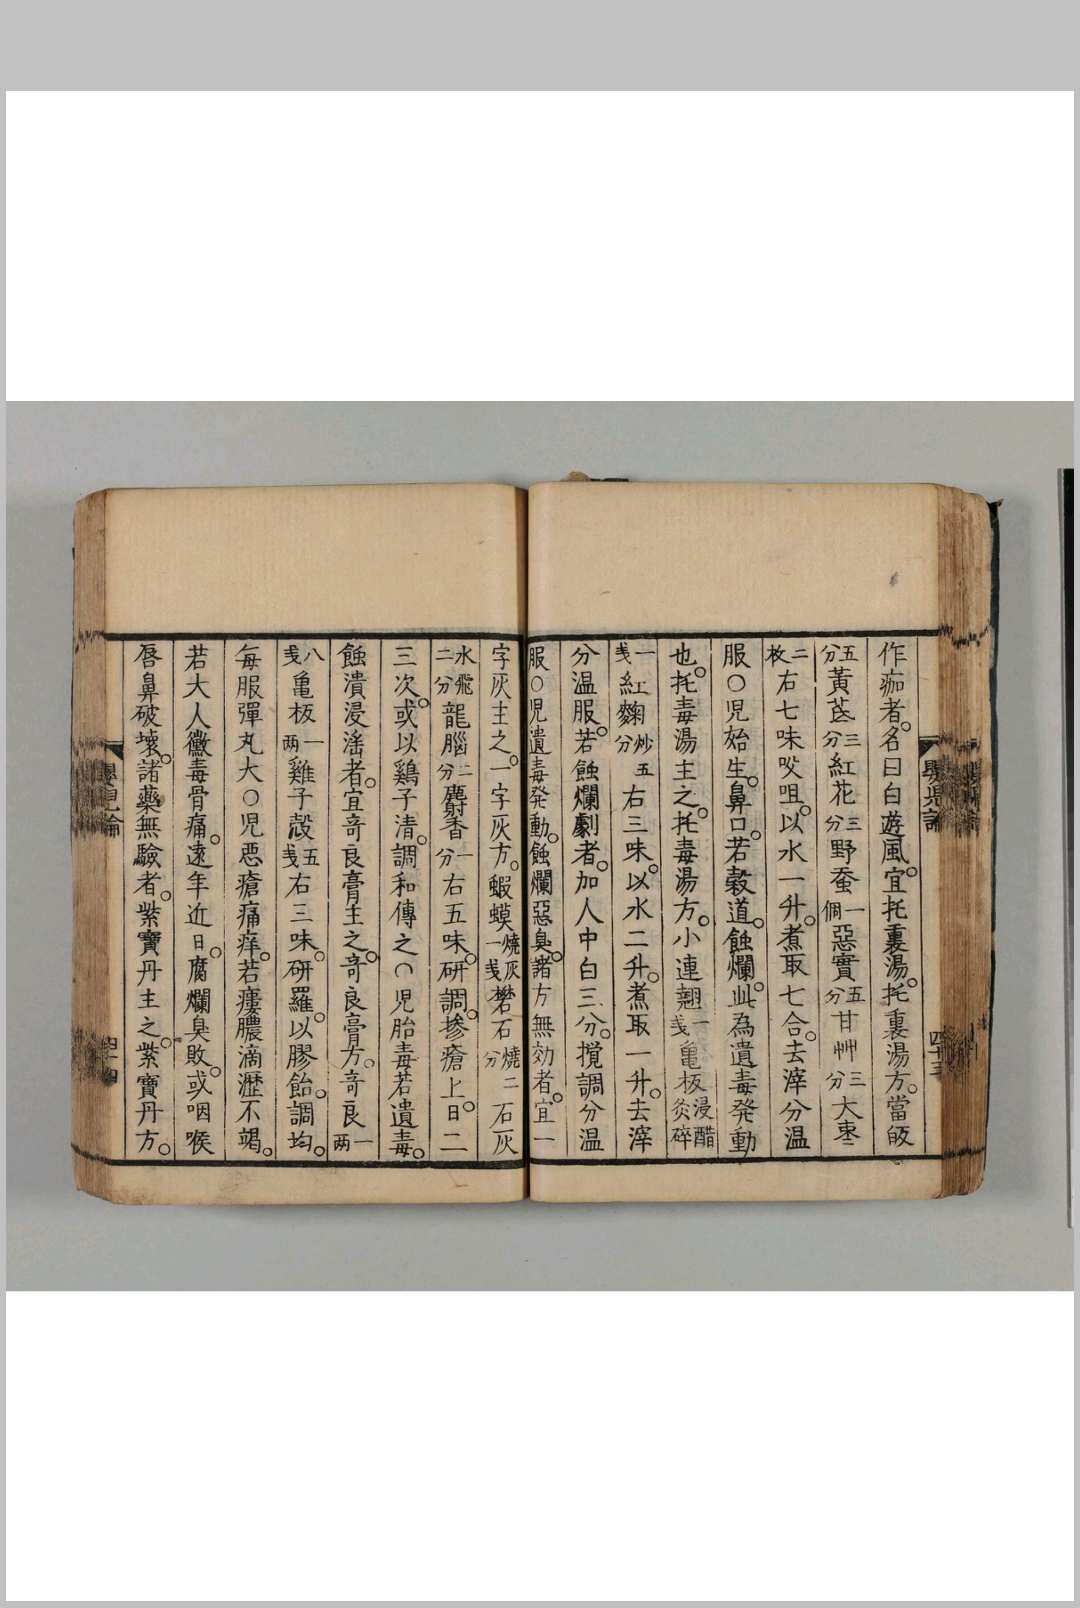 作痂者。名曰白遊風。宜托裏湯。托裏湯方。當皈
五分黃芪三分紅花三分野蚕一個惡實五分甘艸三分大枣
二枚右七味㕮咀。以水一升。煮取七合。去滓分温
服○児始生。鼻口。若穀道。蝕爛。此為遺毒発動
也。托毒湯主之。托毒湯方。小連翹一戔亀板浸醋炙碎
一戔紅麴炒五分右三味。以水二升。煮取一升。去滓
分温服。若蝕爛劇者。加人中白三分。攪調分温
服○児遺毒発動。蝕爛惡臭。諸方無効者。宜一
字灰主之。一字灰方。蝦蟆燒灰一戔礬石燒二分石灰
水飛二分龍腦二分麝香一分右五味。研調。摻瘡上。日二
三次。或以鷄子清。調和傅之○児胎毒若遺毒。
蝕潰浸滛者。宜竒良膏主之。竒良膏方。竒良一両
八戔亀板一両雞子殻五戔右三味。研羅。以膠飴。調均。
每服彈丸大○児恶瘡痛痒。若瘻膿滴瀝不竭。
若大人黴毒骨痛。遠年近日。腐爛臭敗。或咽喉
唇鼻破壞。諸藥無驗者。紫寶丹主之。紫寶丹方。
四十三
四十四